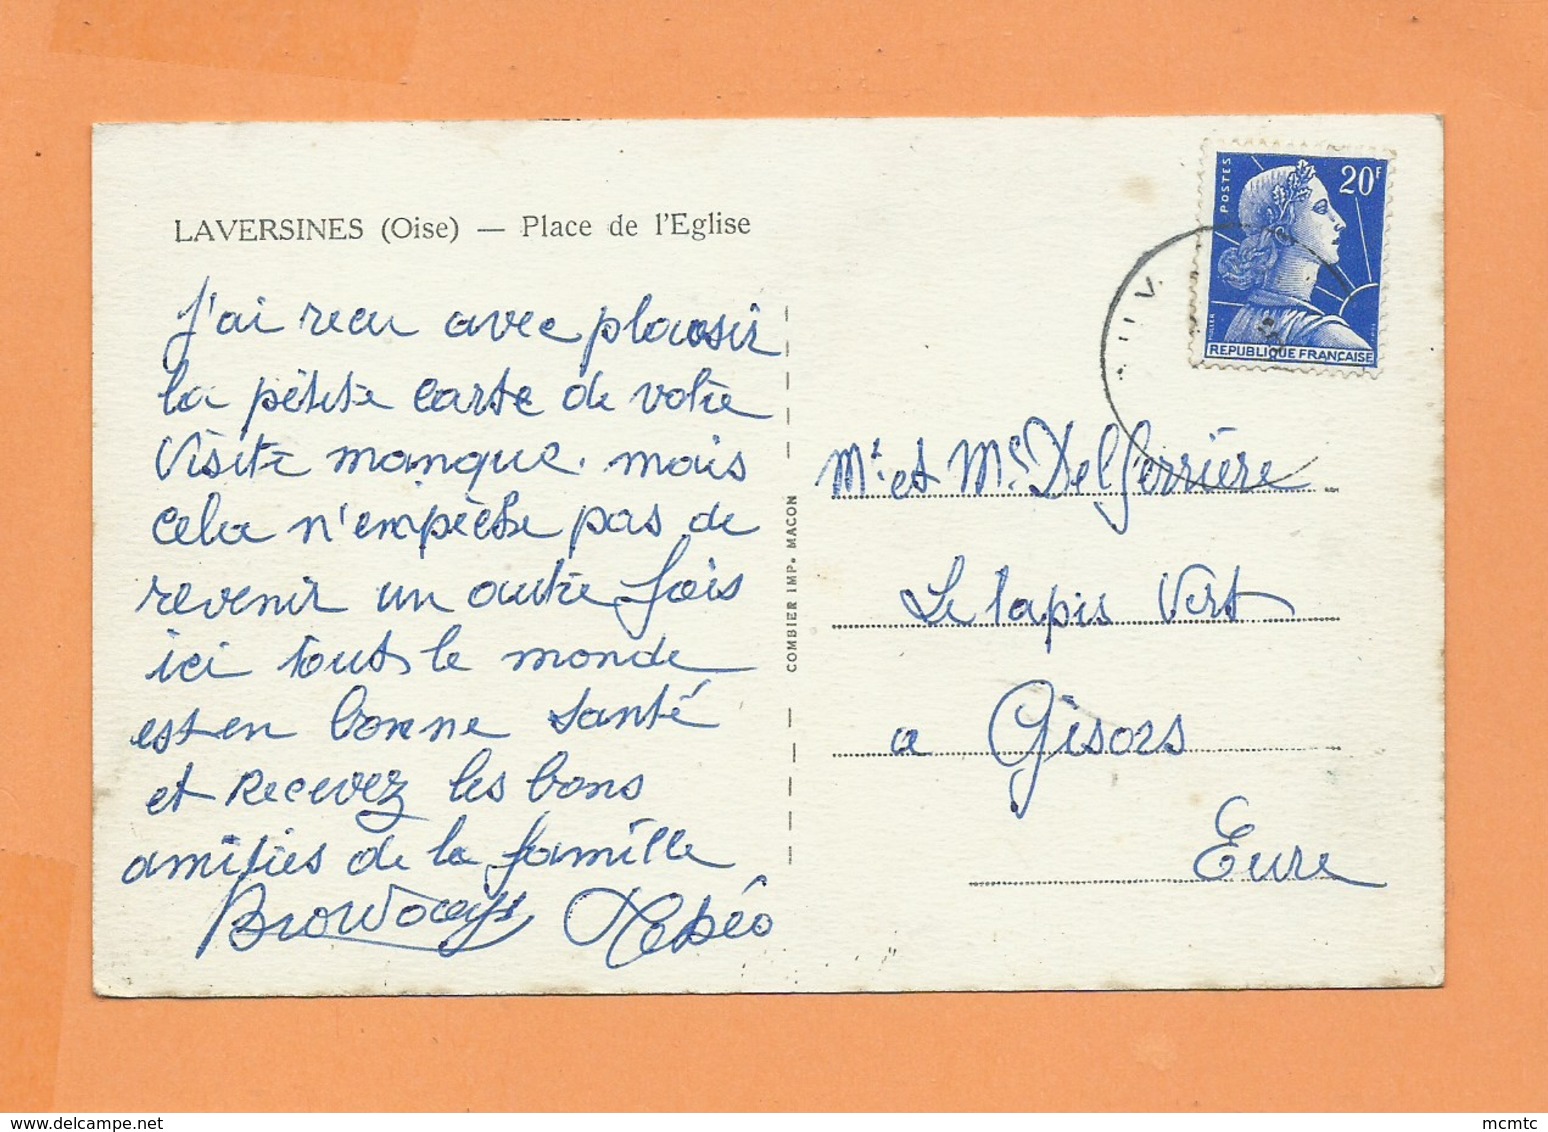 LAVERSINES (Oise) — Place de l'Eglise
J'ai recu avec plaisir
la pètite carte de votre
visite manque. mais
cela n'empèche pas de
revenir un autre fois
ici tout le monde
est en bonne santé
et Recevez les bons
amitiés de la famille
COMBIER IMP. MACON
POSTES
20F
MULLER
REPUBLIQUE FRANÇAISE
Mr. et Me. Delferrière
Le tapis Vert
a Gisors
Eure
mcmtc